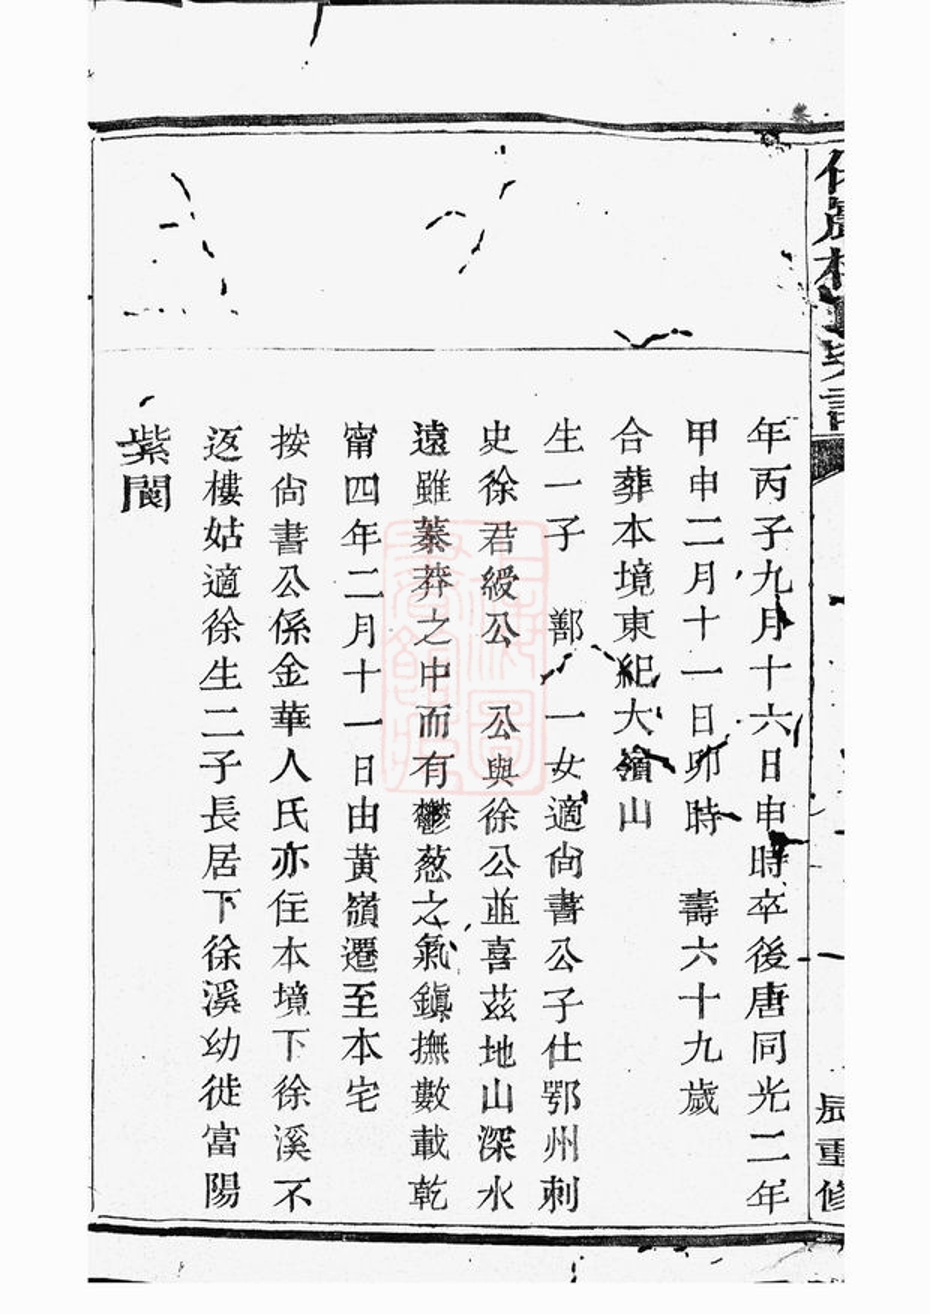 年丙子九月十六日申時卒後唐同光二年
甲申二月十一日卯時　壽六十九歲
合葬本境東紀大嶺山
生一子　鄯　一女適尙書公子仕鄂州刺
史徐君綬公　公與徐公並喜茲地山深水
遠雖蓁莽之中而有鬱葱之氣鎭撫數載乾
甯四年二月十一日由黃嶺遷至本宅
按尙書公係金華人氏亦住本境下徐溪不
返樓姑適徐生二子長居下徐溪幼徙富陽
紫閬
重修
上海圖書館藏